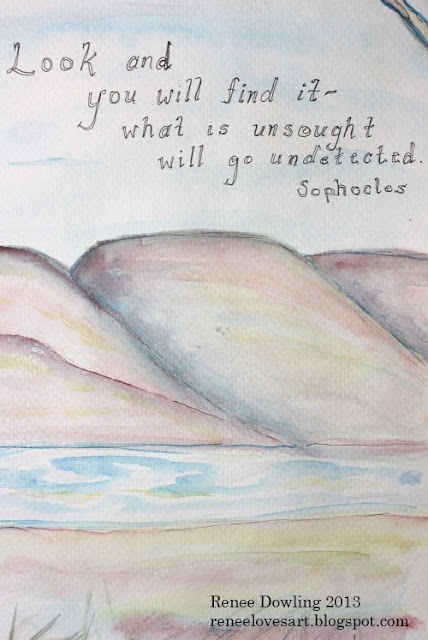 Look and
you will find it~
what is unsought
will go undetected.
Sophocles
Renee Dowling 2013
reneelovesart.blogspot.com